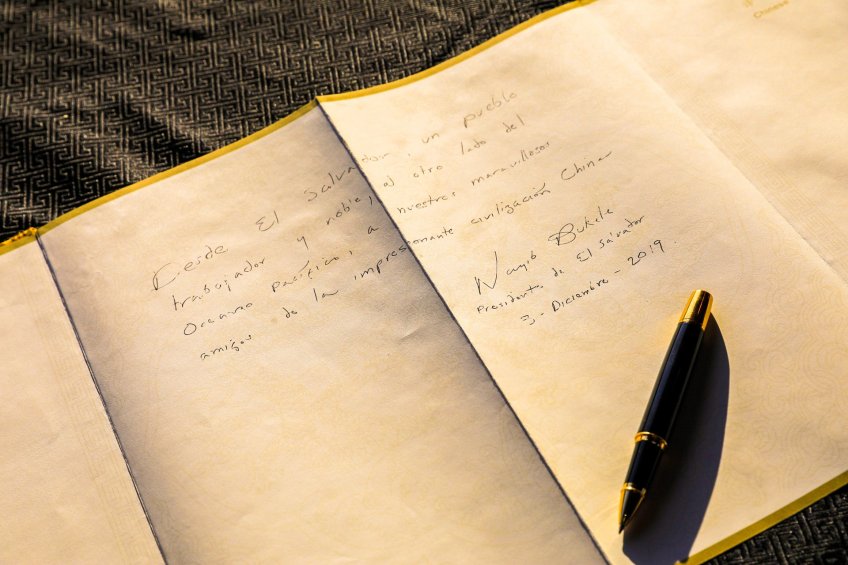 Desde El Salvador, un pueblo
trabajador y noble, al otro lado del
Oceano pacífico, a nuestros maravillosos
amigos de la impresionante civilización China
Nayib Bukele
Presidente de El Salvador
3 - Diciembre - 2019.